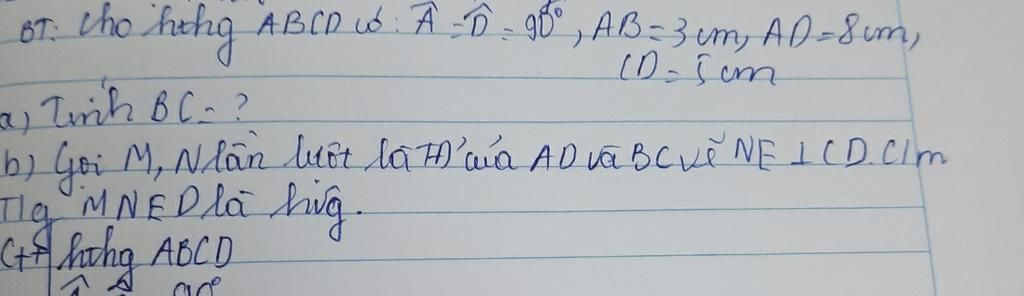 BT: Cho hthg ABCD có: Â = D̂ = 90°, AB = 3 cm, AD = 8 cm,
CD = 5 cm
a) Tính BC = ?
b) Gọi M, N lần lượt là TĐ' của AD và BC vẽ NE ⊥ CD. C/m
T/g MNED là hvg.
Gt hthg ABCD
90°